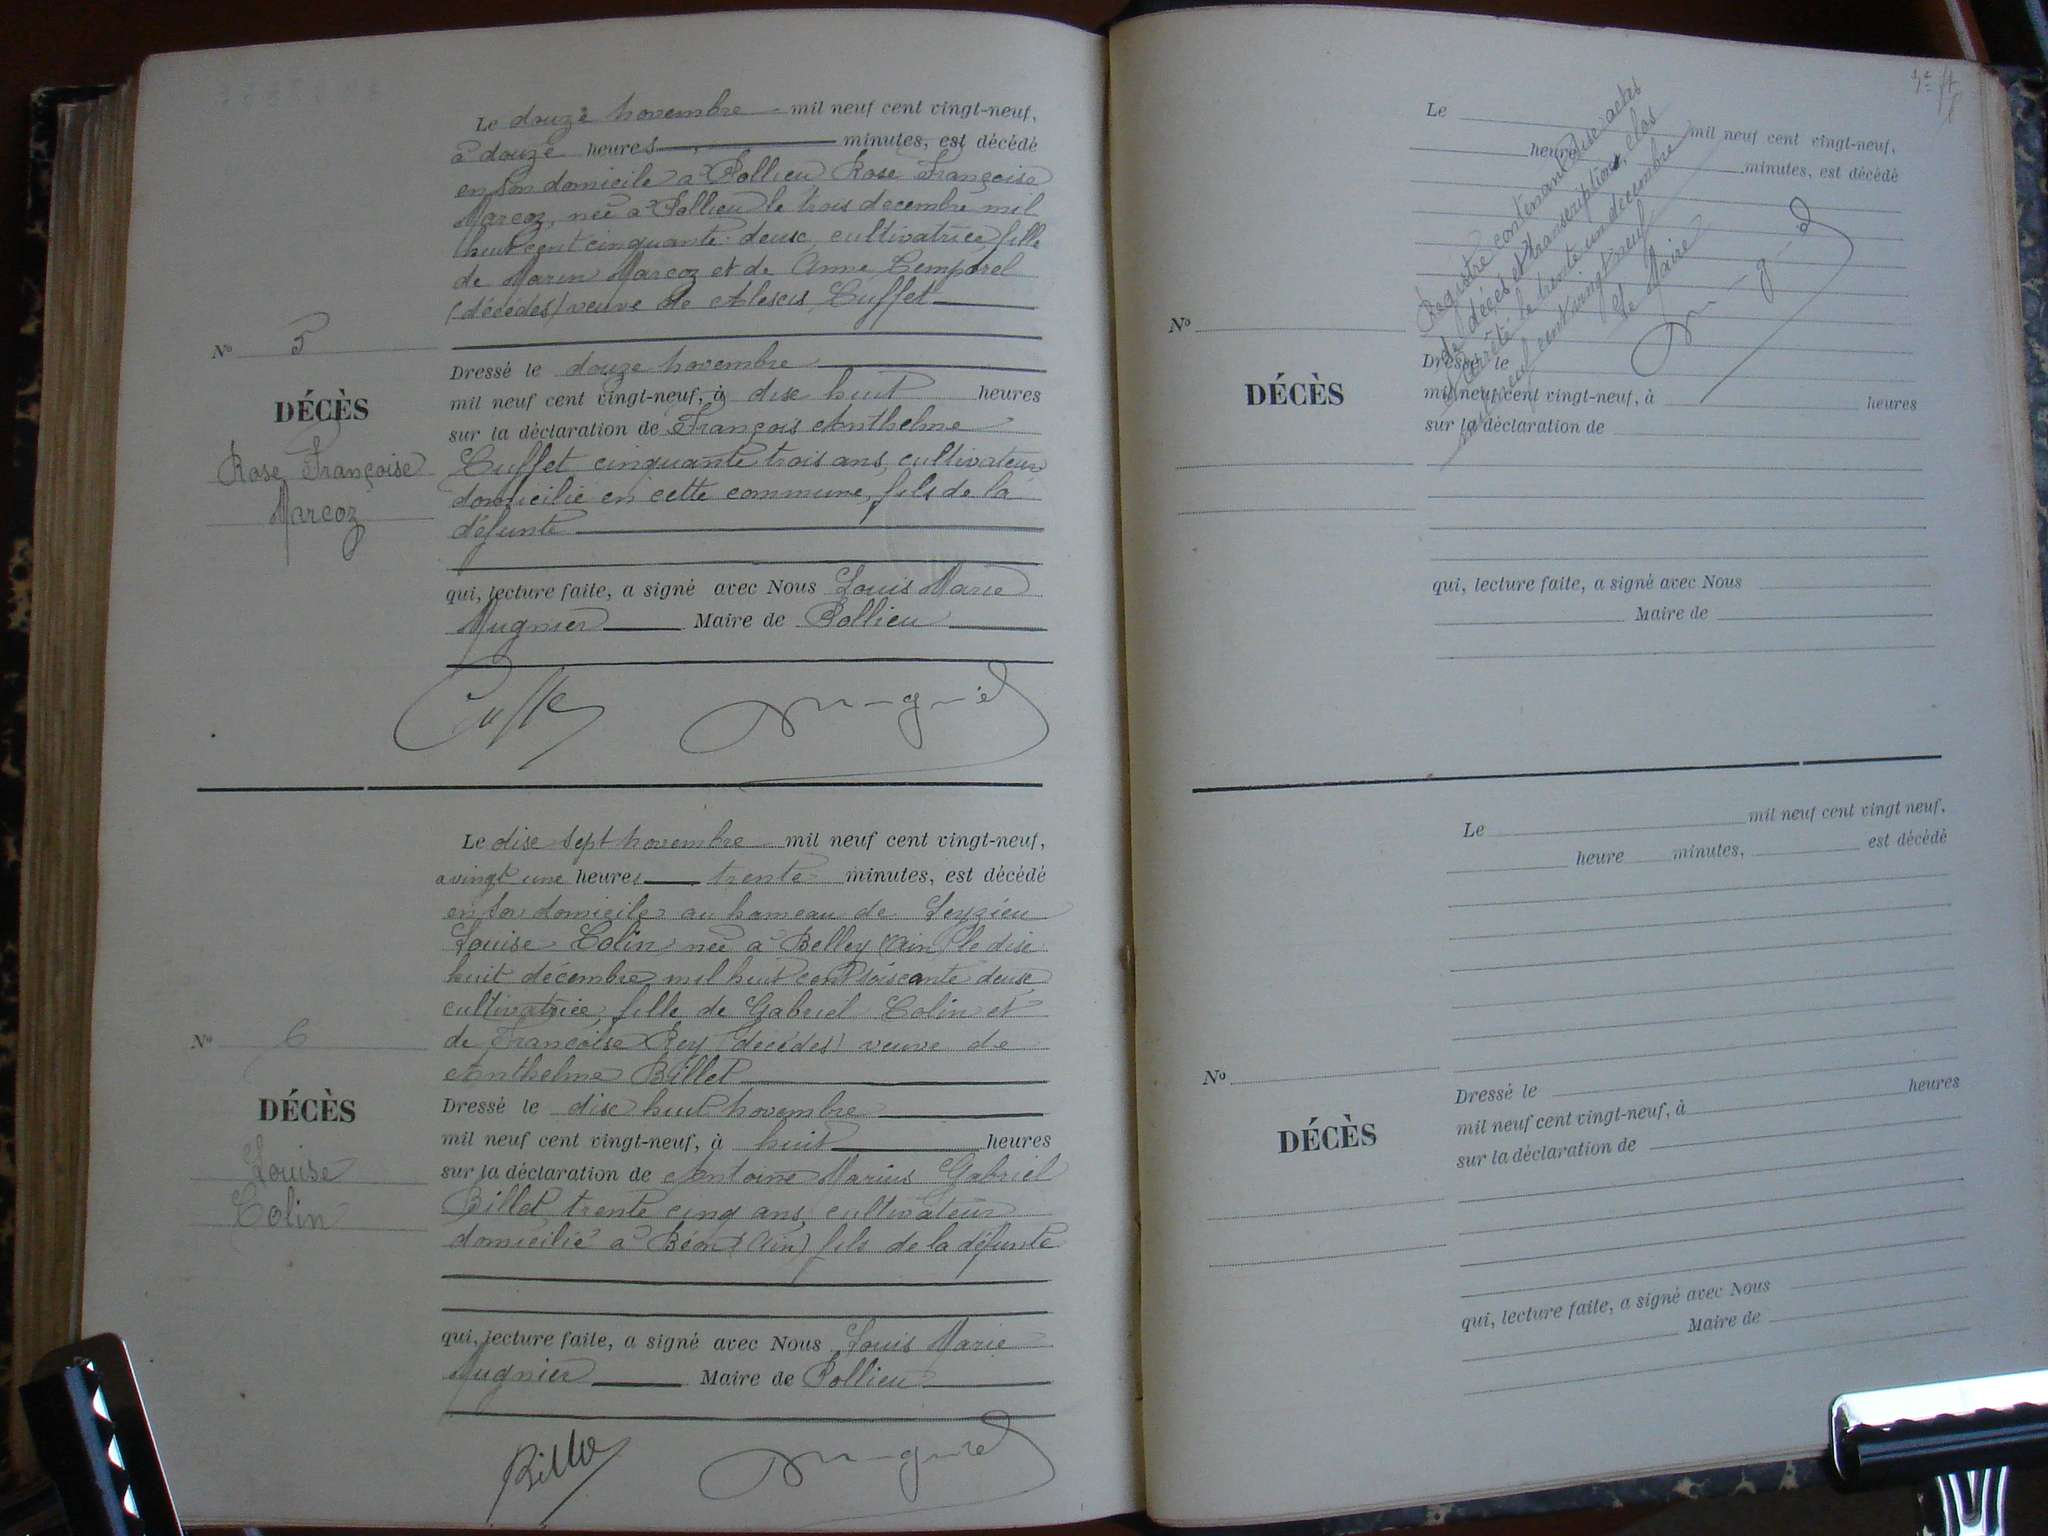 Le douze novembre mil neuf cent vingt-neuf,
à douze heures minutes, est décédé
en son domicile à Pollieu Rose Françoise
Marcoz, née à Pollieu le trois décembre mil
huit cent cinquante-deux, cultivatrice, fille
de Marin Marcoz et de Anne Temporel
(décédés) veuve de Alexis Cuffet
Nº 5
DÉCÈS
Rose Françoise
Marcoz
Dressé le douze novembre
mil neuf cent vingt-neuf, à dix huit heures
sur la déclaration de François Anthelme
Cuffet, cinquante trois ans, cultivateur
domicilié en cette commune, fils de la
défunte
qui, lecture faite, a signé avec Nous Louis Marie
Mugnier Maire de Pollieu
Mugnier
Le dix sept novembre mil neuf cent vingt-neuf,
à vingt une heures trente minutes, est décédé
en son domicile au hameau de Leyzieu
Louise Colin, née à Belley (Ain) le dix
huit décembre mil huit cent soixante deux
cultivatrice, fille de Gabriel Colin et
de Françoise Rey (décédés) veuve de
Anthelme Billet
Nº 6
DÉCÈS
Louise
Colin
Dressé le dix huit novembre
mil neuf cent vingt-neuf, à huit heures
sur la déclaration de Antoine Marius Gabriel
Billet trente cinq ans, cultivateur
domicilié à Béon (Ain) fils de la défunte
qui, lecture faite, a signé avec Nous Louis Marie
Mugnier Maire de Pollieu
Billet
Mugnier
Le mil neuf cent vingt-neuf,
heure minutes, est décédé
Registre contenant dix actes
de décès et transcriptions, clos
et arrêté le trente un décembre
mil neuf cent vingt neuf
Le Maire
Nº
DÉCÈS
Dressé le
mil neuf cent vingt-neuf, à heures
sur la déclaration de
qui, lecture faite, a signé avec Nous
Maire de
Le mil neuf cent vingt neuf,
heure minutes, est décédé
Nº
DÉCÈS
Dressé le
mil neuf cent vingt-neuf, à heures
sur la déclaration de
qui, lecture faite, a signé avec Nous
Maire de